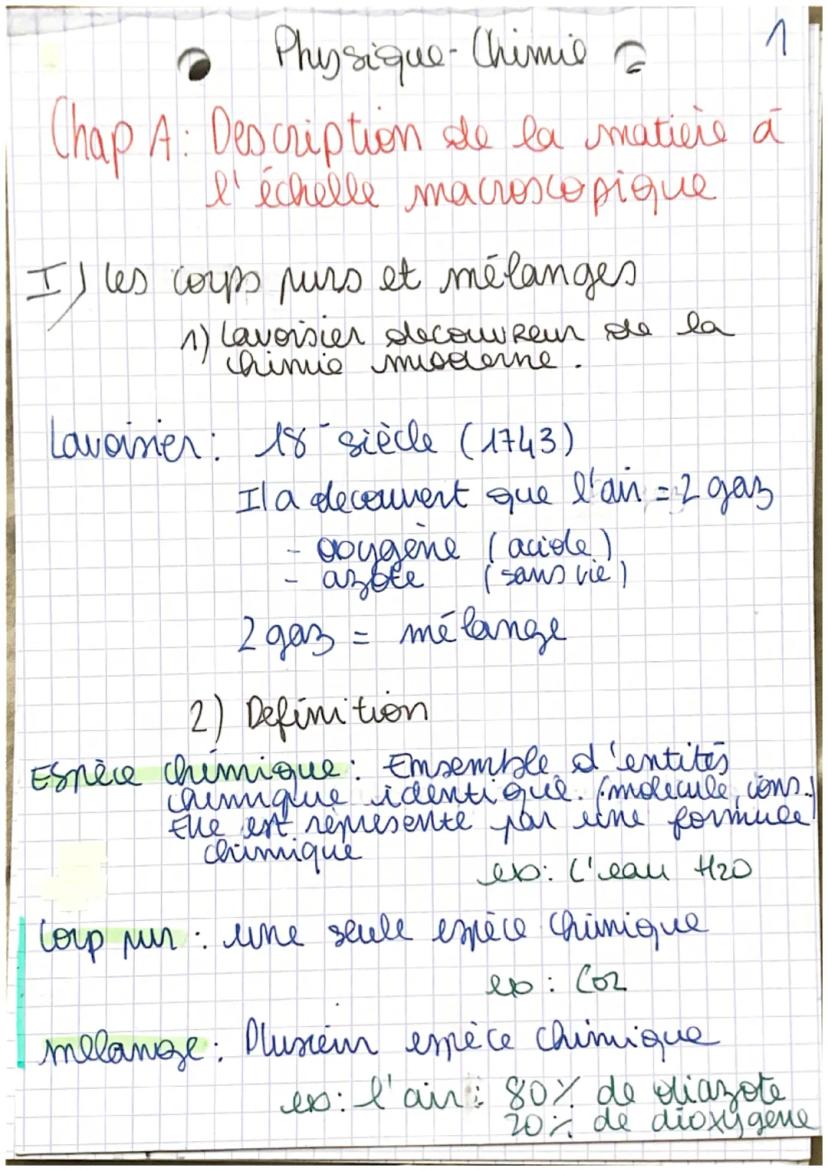 Physique-Chimie
1
Chap A: Description de la matière à
l'échelle macroscopique
I) les corps purs et mélanges
1) Lavoisier decouvreur de la
chimie moderne.
Lavoisier: 18e siècle (1743)
Il a decouvert que l'air = 2 gaz
- oxygène (acide)
- azote (sans vie)
2 gaz = mélange
2) Definition
Espèce chimique: Ensemble d'entités
chimique identique. (molécule, ions.)
Elle est représente par une formule
chimique
ex: L'eau H2O
Corp pur: une seule espèce chimique
ex: CO2
melange: Plusieur espèce chimique
ex: l'air: 80% de diazote
20% de dioxygene